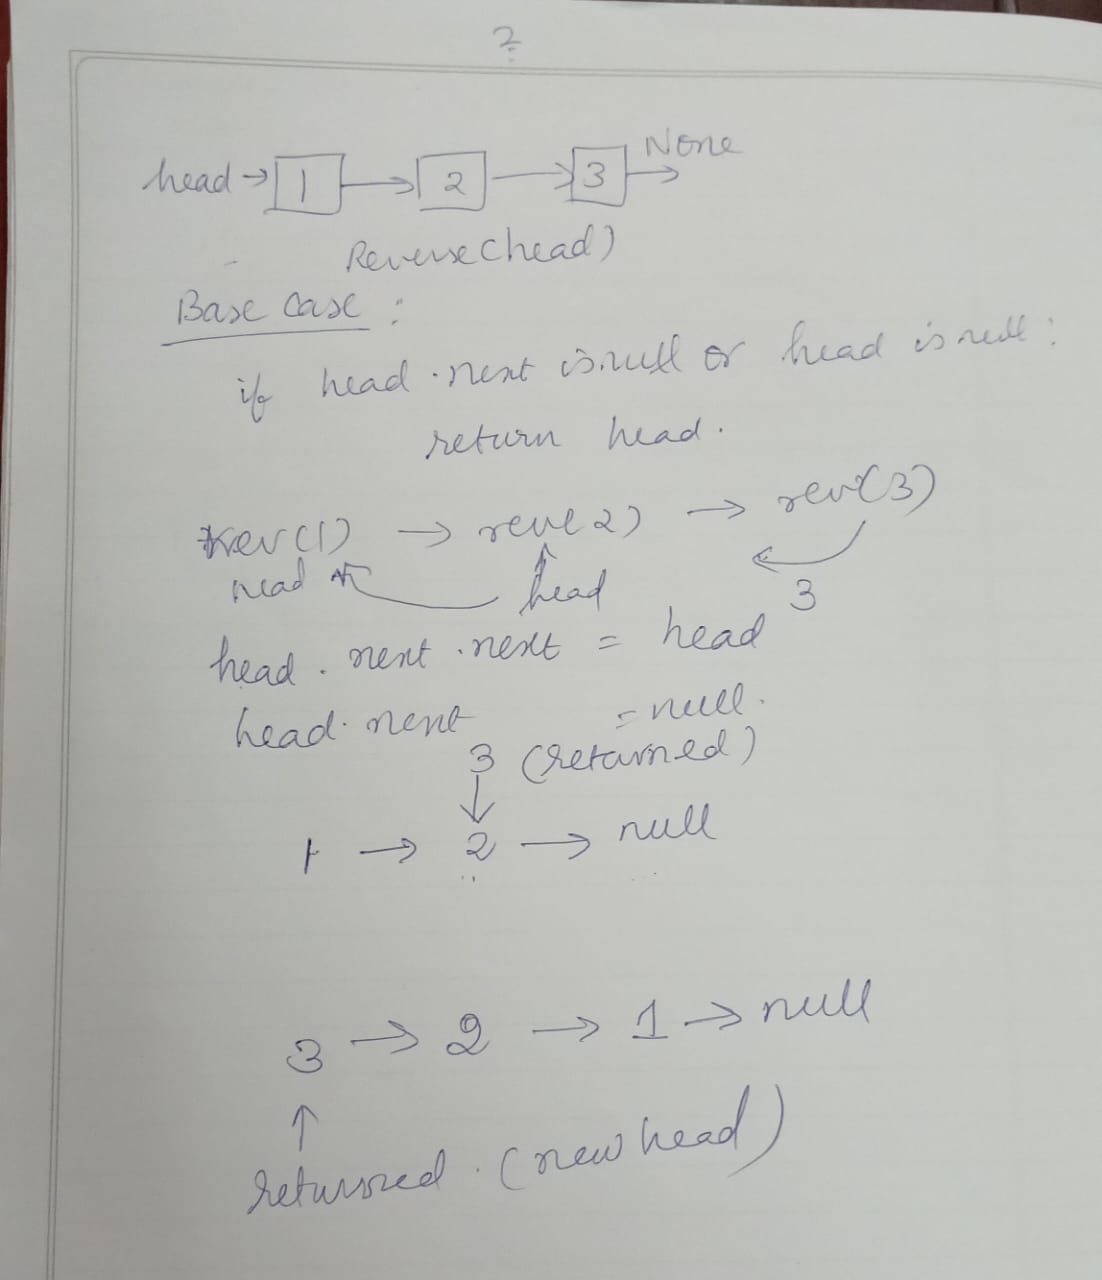 ?
head → 1 → 2 → 3 → None
Reverse(head)
Base case :
if head.next is null or head is null :
return head.
rev(1) → rev(2) → rev(3)
head head 3
head.next.next = head
head.next = null.
3 (returned)
↓
1 → 2 → null
3 → 2 → 1 → null
↑
returned. (new head)